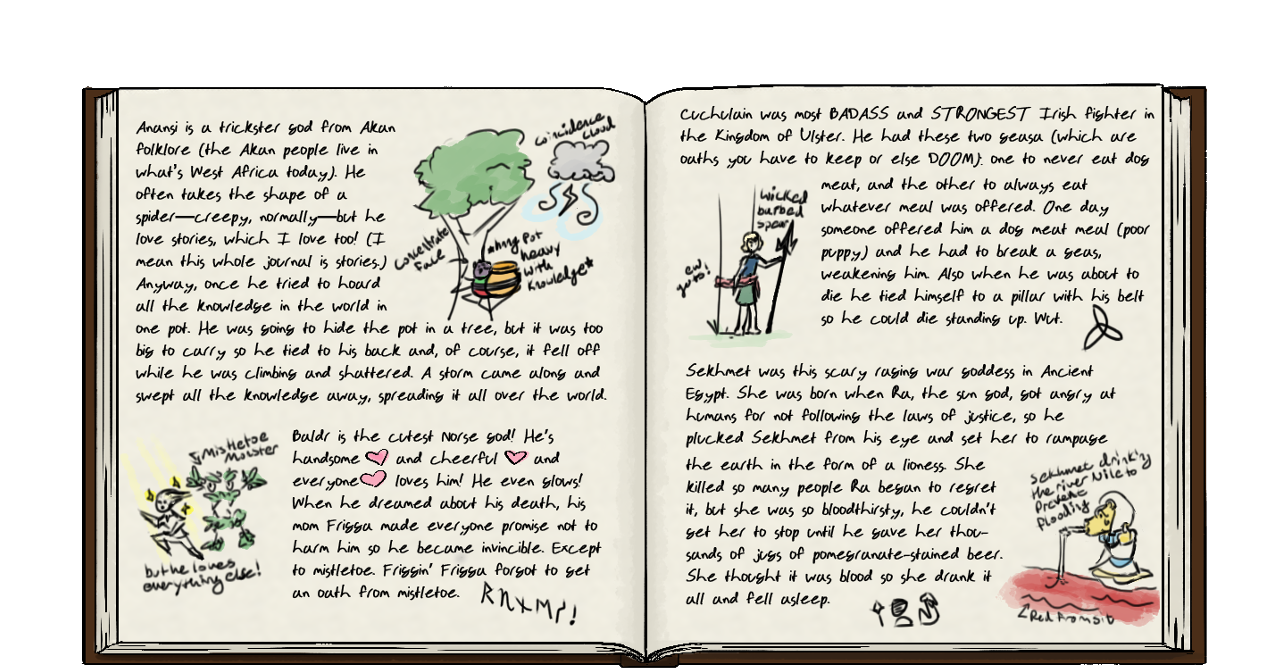 Anansi is a trickster god from Akan
folklore (the Akan people live in
what's West Africa today). He
often takes the shape of a
spider—creepy, normally—but he
love stories, which I love too! (I
mean this whole journal is stories.)
Anyway, once he tried to hoard
all the knowledge in the world in
one pot. He was going to hide the pot in a tree, but it was too
big to carry so he tied to his back and, of course, it fell off
while he was climbing and shattered. A storm came along and
swept all the knowledge away, spreading it all over the world.
coincidence
cloud
concentrate
face
pot
heavy
with
knowledge*
Baldr is the cutest Norse god! He's
handsome and cheerful and
everyone loves him! He even glows!
When he dreamed about his death, his
mom Frigga made everyone promise not to
harm him so he became invincible. Except
to mistletoe. Friggin' Frigga forgot to get
an oath from mistletoe.
Mistletoe
Monster
but he loves
everything else!
Cuchulain was most BADASS and STRONGEST Irish fighter in
the Kingdom of Ulster. He had these two geasa (which are
oaths you have to keep or else DOOM): one to never eat dog
meat, and the other to always eat
whatever meal was offered. One day
someone offered him a dog meat meal (poor
puppy) and he had to break a geas,
weakening him. Also when he was about to
die he tied himself to a pillar with his belt
so he could die standing up. Wut.
wicked
barbed
spear
ew
guts!
Sekhmet was this scary raging war goddess in Ancient
Egypt. She was born when Ra, the sun god, got angry at
humans for not following the laws of justice, so he
plucked Sekhmet from his eye and set her to rampage
the earth in the form of a lioness. She
killed so many people Ra began to regret
it, but she was so bloodthirsty, he couldn't
get her to stop until he gave her thou-
sands of jugs of pomegranate-stained beer.
She thought it was blood so she drank it
all and fell asleep.
Sekhmet drinking
the river Nile to
prevent
flooding
Red from silt